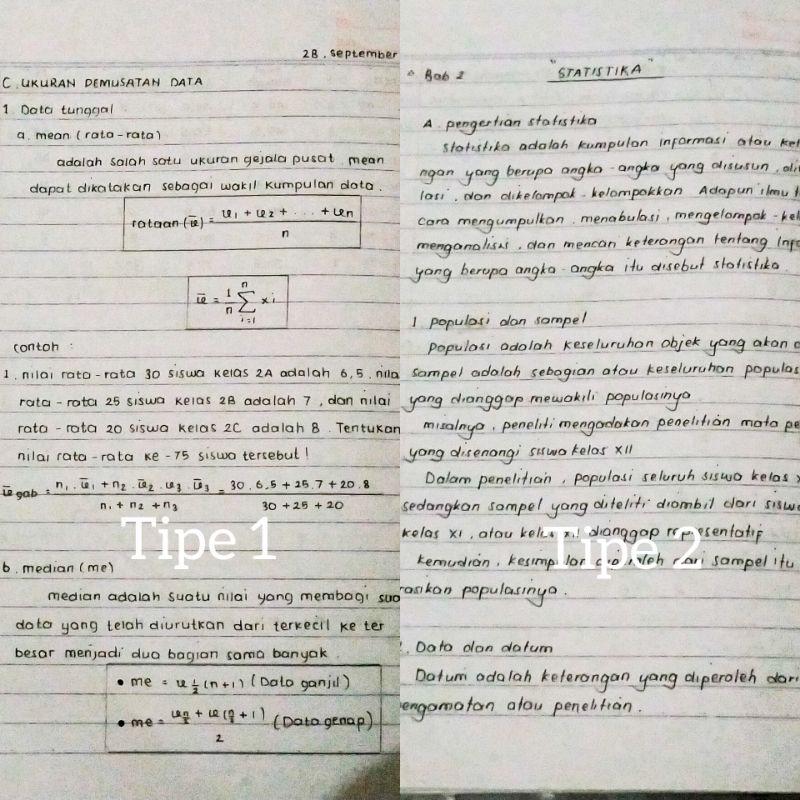 28. september
C. UKURAN PEMUSATAN DATA
1. Data tunggal
a. mean (rata-rata)
adalah salah satu ukuran gejala pusat. mean
dapat dikatakan sebagai wakil kumpulan data.
rataan (x̄) = x₁ + x₂ + ... + xn / n
x̄ = 1/n Σ i=1 n xi
contoh :
1. nilai rata-rata 30 siswa kelas 2A adalah 6,5. nila
rata-rata 25 siswa kelas 2B adalah 7, dan nilai
rata-rata 20 siswa kelas 2C adalah 8. Tentukan
nilai rata-rata ke-75 siswa tersebut!
x̄ gab = n₁ . x̄₁ + n₂ . x̄₂ . x₃ . x̄₃ / n₁ + n₂ + n₃ = 30 . 6,5 + 25.7 + 20.8 / 30 + 25 + 20
Tipe 1
b. median (me)
median adalah suatu nilai yang membagi sua
data yang telah diurutkan dari terkecil ke ter
besar menjadi dua bagian sama banyak.
• me = x ½ (n+1) (Data ganjil)
• me = x n/2 + x (n/2 + 1) / 2 (Data genap)
Bab 2 "STATISTIKA"
A. pengertian statistika
statistika adalah kumpulan informasi atau ket
ngan yang berupa angka-angka yang disusun, dit
lasi, dan dikelompok-kelompokkan. Adapun ilmu t
cara mengumpulkan, menabulasi, mengelompok-kel
menganalisis, dan mencari keterangan tentang Info
yang berupa angka-angka itu disebut statistika.
1 populasi dan sampel
populasi adalah keseluruhan objek yang akan d
sampel adalah sebagian atau keseluruhan populas
yang dianggap mewakili populasinya
misalnya, peneliti mengadakan penelitian mata pe
yang disenangi siswa kelas XII
Dalam penelitian, populasi seluruh siswa kelas x
sedangkan sampel yang diteliti diambil dari siswa
kelas XI, atau kelas XII dianggap representatif
Tipe 2
kemudian, kesimpulan diperoleh dari sampel itu
rasikan populasinya.
. Data dan datum
Datum adalah keterangan yang diperoleh dari
engamatan atau penelitian.